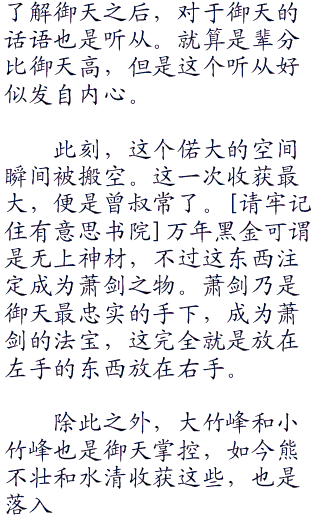 了解御天之后，对于御天的
话语也是听从。就算是辈分
比御天高，但是这个听从好
似发自内心。
此刻，这个偌大的空间
瞬间被搬空。这一次收获最
大，便是曾叔常了。[请牢记
住有意思书院]万年黑金可谓
是无上神材，不过这东西注
定成为萧剑之物。萧剑乃是
御天最忠实的手下，成为萧
剑的法宝，这完全就是放在
左手的东西放在右手。
除此之外，大竹峰和小
竹峰也是御天掌控，如今熊
不壮和水清收获这些，也是
落入